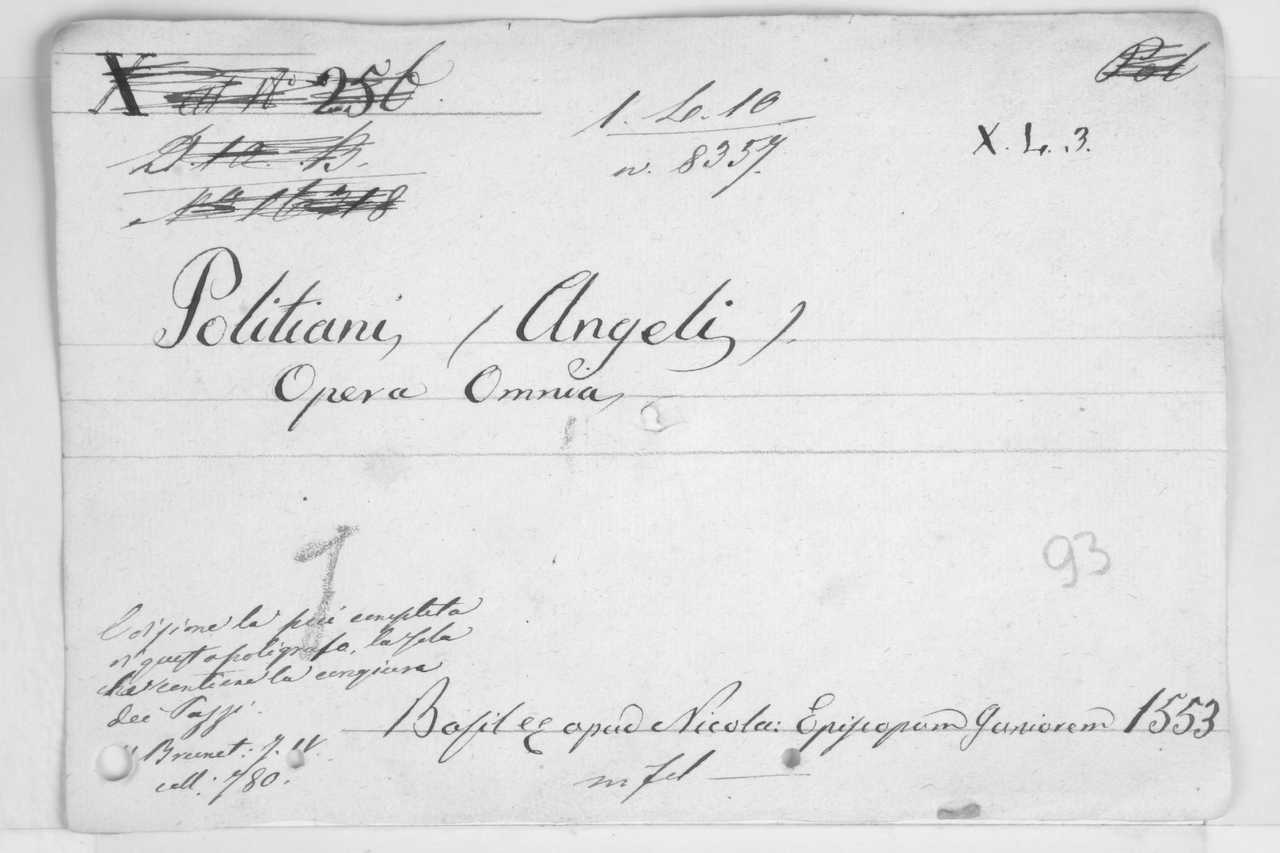 X 256
Pol
1. L. 10
n. 8357.
X. L. 3.
Politiani, (Angeli)
Opera Omnia,
1
93
Edizione la più completa
di questo poligrafo, la sola
che contiene la congiura
dei Pazzi.
V. Brunet: T. IV.
coll: 780.
Basileæ apud Nicola: Episcopum Juniorem 1553
in fol